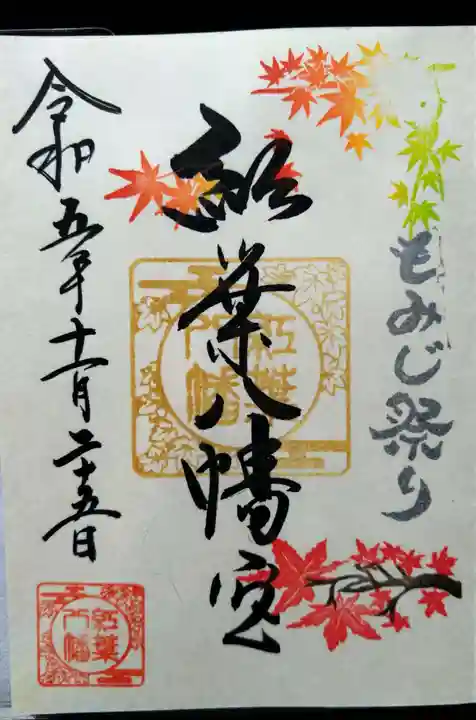 もみじ祭り
紅葉八幡宮
紅葉
八幡
令和五年十一月二十五日
紅葉
八幡